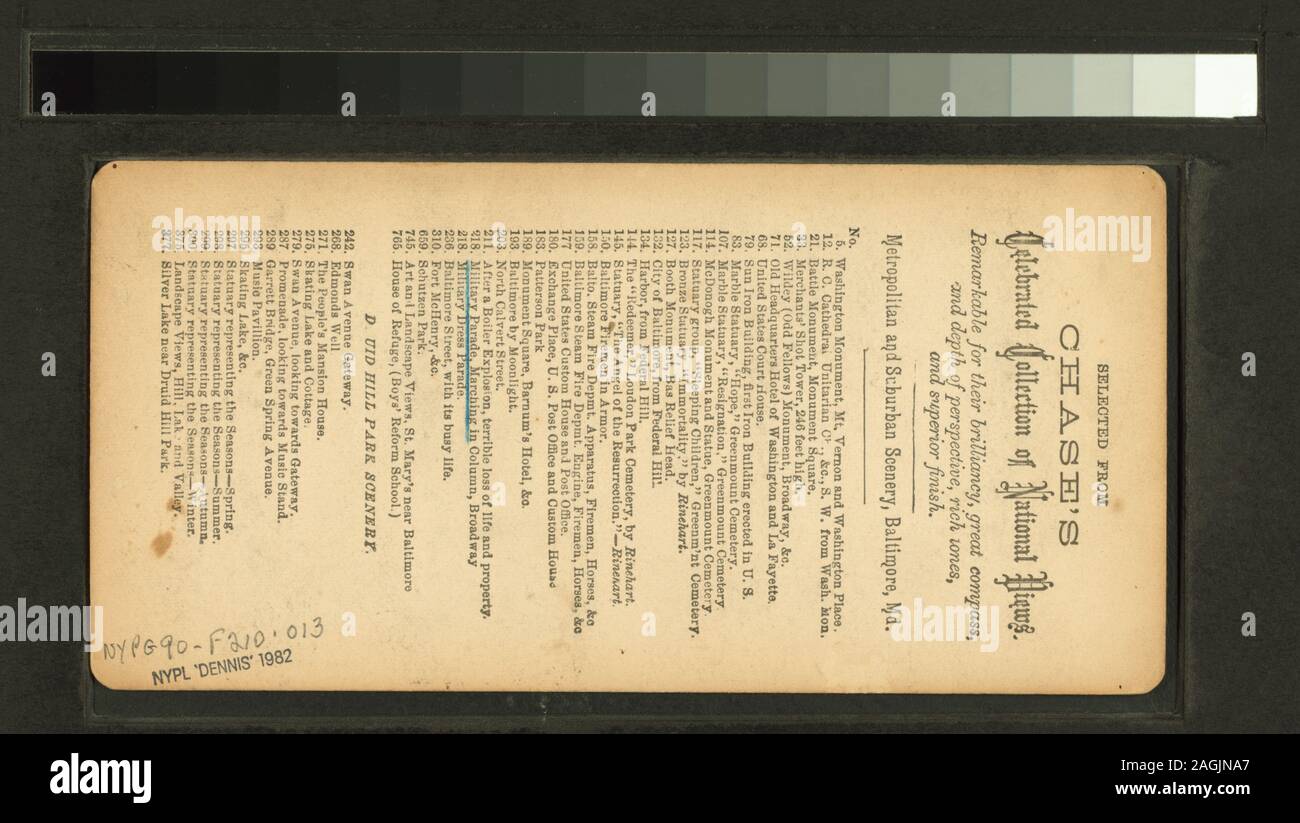 SELECTED FROM
CHASE'S
Celebrated Collection of National Views.
Remarkable for their brilliancy, great compass,
and depth of perspective, rich tones,
and superior finish.
Metropolitan and Suburban Scenery, Baltimore, Md.
No.
5. Washington Monument, Mt. Vernon and Washington Place.
12. R. C. Cathedral Unitarian Ch., &c., S. W. from Wash. Mon.
21. Battle Monument, Monument Square.
33. Merchants' Shot Tower, 246 feet high.
52. Wildey (Odd Fellows) Monument, Broadway, &c.
71. Old Headquarters Hotel of Washington and La Fayette.
68. United States Court House.
79. Sun Iron Building, first Iron Building erected in U. S.
83. Marble Statuary, "Hope," Greenmount Cemetery.
107. Marble Statuary, "Resignation," Greenmount Cemetery
114. McDonogh Monument and Statue, Greenmount Cemetery.
117. Statuary group, "Sleeping Children," Greenm'nt Cemetery.
123. Bronze Statuary "Immortality." by Rinehart.
127. Booth Monument, Bas Relief Head.
132. City of Baltimore, from Federal Hill.
134. Harbor, from Federal Hill.
144. The "Redeemer," London Park Cemetery, by Rinehart.
145. Statuary, "The Angel of the Resurrection."—Rinehart.
150. Baltimore Firemen in Armor.
158. Balto. Steam Fire Depmt. Apparatus, Firemen, Horses, &c
159. Baltimore Steam Fire Depmt. Engine, Firemen, Horses, &c
177 United States Custom House and Post Office.
180. Exchange Place, U. S. Post Office and Custom House
183 Patterson Park
189 Monument Square, Barnum's Hotel, &c.
193 Baltimore by Moonlight.
203. North Calvert Street.
211. After a Boiler Explosion, terrible loss of life and property.
218. Military Parade, Marching in Column, Broadway
218. Military Dress Parade.
226 Baltimore Street, with its busy life.
310. Fort McHenry, &c.
659 Schutzen Park.
745. Art and Landscape Views, St. Mary's near Baltimore
765 House of Refuge, (Boys' Reform School.)
D UID HILL PARK SCENERY.
242. Swan Avenue Gateway.
268. Edmonds Well
271. The People's Mansion House.
275. Skating Lake and Cottage.
279. Swan Avenue, looking towards Gateway.
287 Promenade, looking towards Music Stand.
289 Garrett Bridge, Green Spring Avenue.
293 Music Pavillion.
295. Skating Lake, &c.
297. Statuary representing the Seasons—Spring.
298. Statuary representing the Seasons—Summer.
299. Statuary representing the Seasons—Autumn.
Statuary representing the Seasons—Winter.
375. Landscape Views, Hill, Lake and Valley.
377. Silver Lake near Druid Hill Park.
NYPG90-F210.013
NYPL 'DENNIS' 1982
a
a
a
a
alamy
alamy
Image ID: 2AGJNA7
www.alamy.com